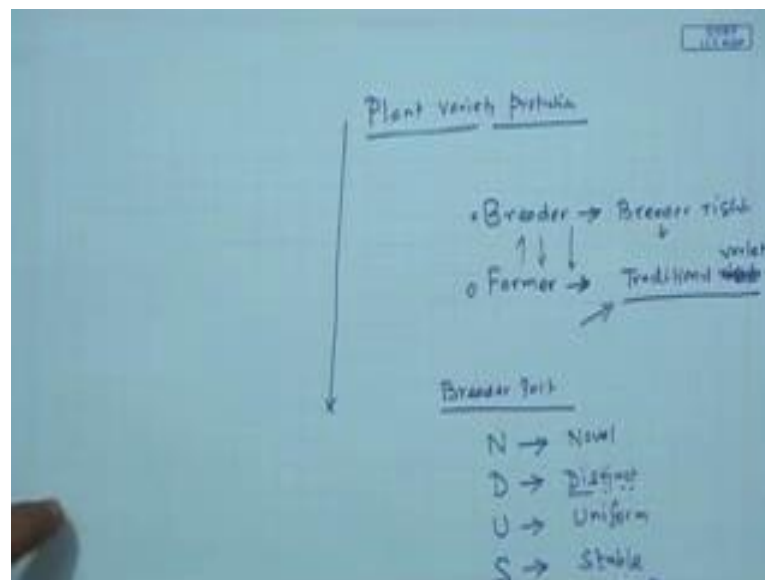 Plant variety Protection
• Breeder → Breeder right
↑ ↓ ↓ ↓
o Farmer → Traditional variet
Breeder
N → Novel
D → Distinct
U → Uniform
S → Stable